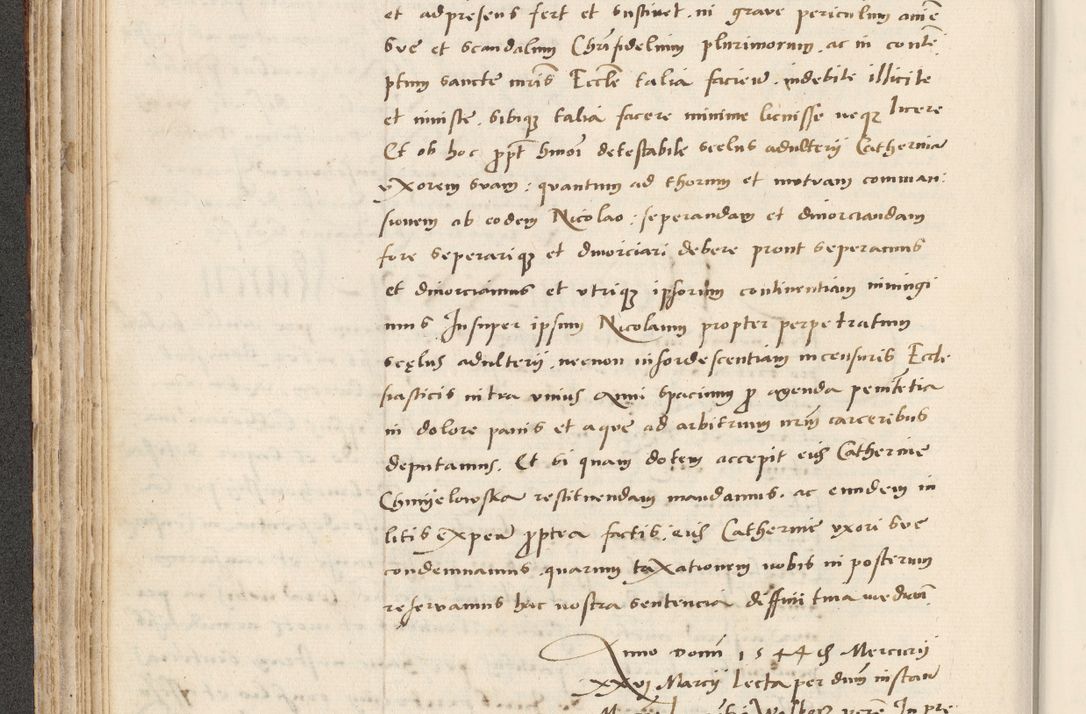 et ad presens fert et sustinet ni grave periculum anime
sue et scandalum Christifidelium plurimorum ac in contem
ptum sancte matris Ecclesie talia faciens indebite illicite
et iniuste sibique talia facere minime licuisse neque licere
Et ob hoc propter huiusmodi detestabile scelus adulterii Catherina
uxorem suam : quantum ad thorum et mutuam comman:
sionem ab eodem Nicolao : seperandam et divorciandam
fore seperarique et divorciari debere prout seperamus
et divorciamus et utrique ipsorum continentiam iniungi
mus Insuper ipsum Nicolaum propter perpetratum
scęlus adulterii necnon insordescentiam in censuris Eccle
siasticis intra unius Anni spacium pro agenda penitentia
in dolore panis et aque ad arbitrium nostrum carceribus
deputamus. Et si quam dotem accepit eius Catherine
Chmyelowska restituendam mandamus ac eundem in
litis expensis propterea factis eius Catherine uxori sue
condemnamus quarum taxationem nobis in posterum
reservamus hac nostra sentencia diffinitiva mediante
Anno domini 1544 die Mercurii
XXVI Marcii Lecta per dominum instan